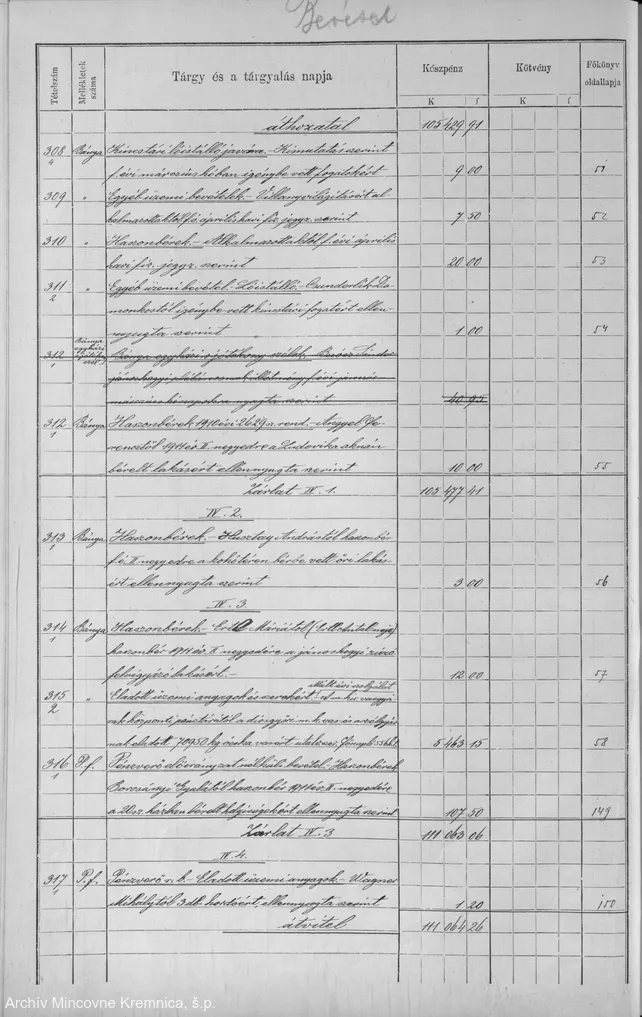 Bevétel
Tételszám
Mellékletek száma
Tárgy és a tárgyalás napja
Készpénz
Kötvény
Főkönyv oldallapja
K f K f
áthozatal 105 429 91
308/4 Bánya Kincstári lóistálló javára. Kimutatás szerint
f. évi márczius hóban igénybe vett fogatokért 9 00 51
309 " Egyéb üzemi bevételek. - Villanyvilágításért al-
kalmazottaktól f. é. április havi fiz. jegyz. szerint 7 50 52
310 " Haszonbérek. - Alkalmazottaktól f. évi április
havi fiz. jegyz. szerint 20 00 53
311/2 " Egyéb üzemi bevétel. Lóistálló. - Csunderlik Do-
monkostól igénybe vett kincstári fogatért ellen-
nyugta szerint 1 00 54
312/1 Bánya egyházi
szerint 40 95
312/1 Bánya Haszonbérek 1910 évi 2629 sz. rend. - Angyel Fe-
rencztől 1911 év II. negyedre a Ludovika aknán
bérelt lakásért ellennyugta szerint 10 00 55
Zárlat IV. 1. 105 477 41
IV. 2.
313/1 Bánya Haszonbérek. - Huszlay Andrástól haszonbér
f. é. II negyedre a kohótéren bérbe vett őri laká-
sért ellennyugta szerint 3 00 56
IV. 3.
314/1 Bánya Haszonbérek. - Ertl Máriától (Ertl Antal neje)
haszonbér 1911 év II. negyedére a jánoshegyi
felvigyázó lakásért. - 12 00 57
315/2 " Eladott üzemi anyagok és szerekért
Múlt évi szolgálat
rak központi pénztárától a diósgyőri m. k. vas és aczélgyár-
nak eladott 70950 kg ócska vasért 5 463 15 58
316/1 P. f. Pénzverő előirányzat nélküli bevétel. Haszonbérek
Borcsányi Gyulától haszonbér 1911 év II. negyedére
a házban bérelt helyiségekért ellennyugta szerint 107 50 149
Zárlat IV. 3 111 063 06
IV. 4.
317/1 P. f. Pénzverő r. b. - Eladott üzemi anyagok. - Wagner
Mihálytól 3 db. hordóért, ellennyugta szerint 1 20 150
átvitel 111 064 26
Archív Mincovne Kremnica, š.p.